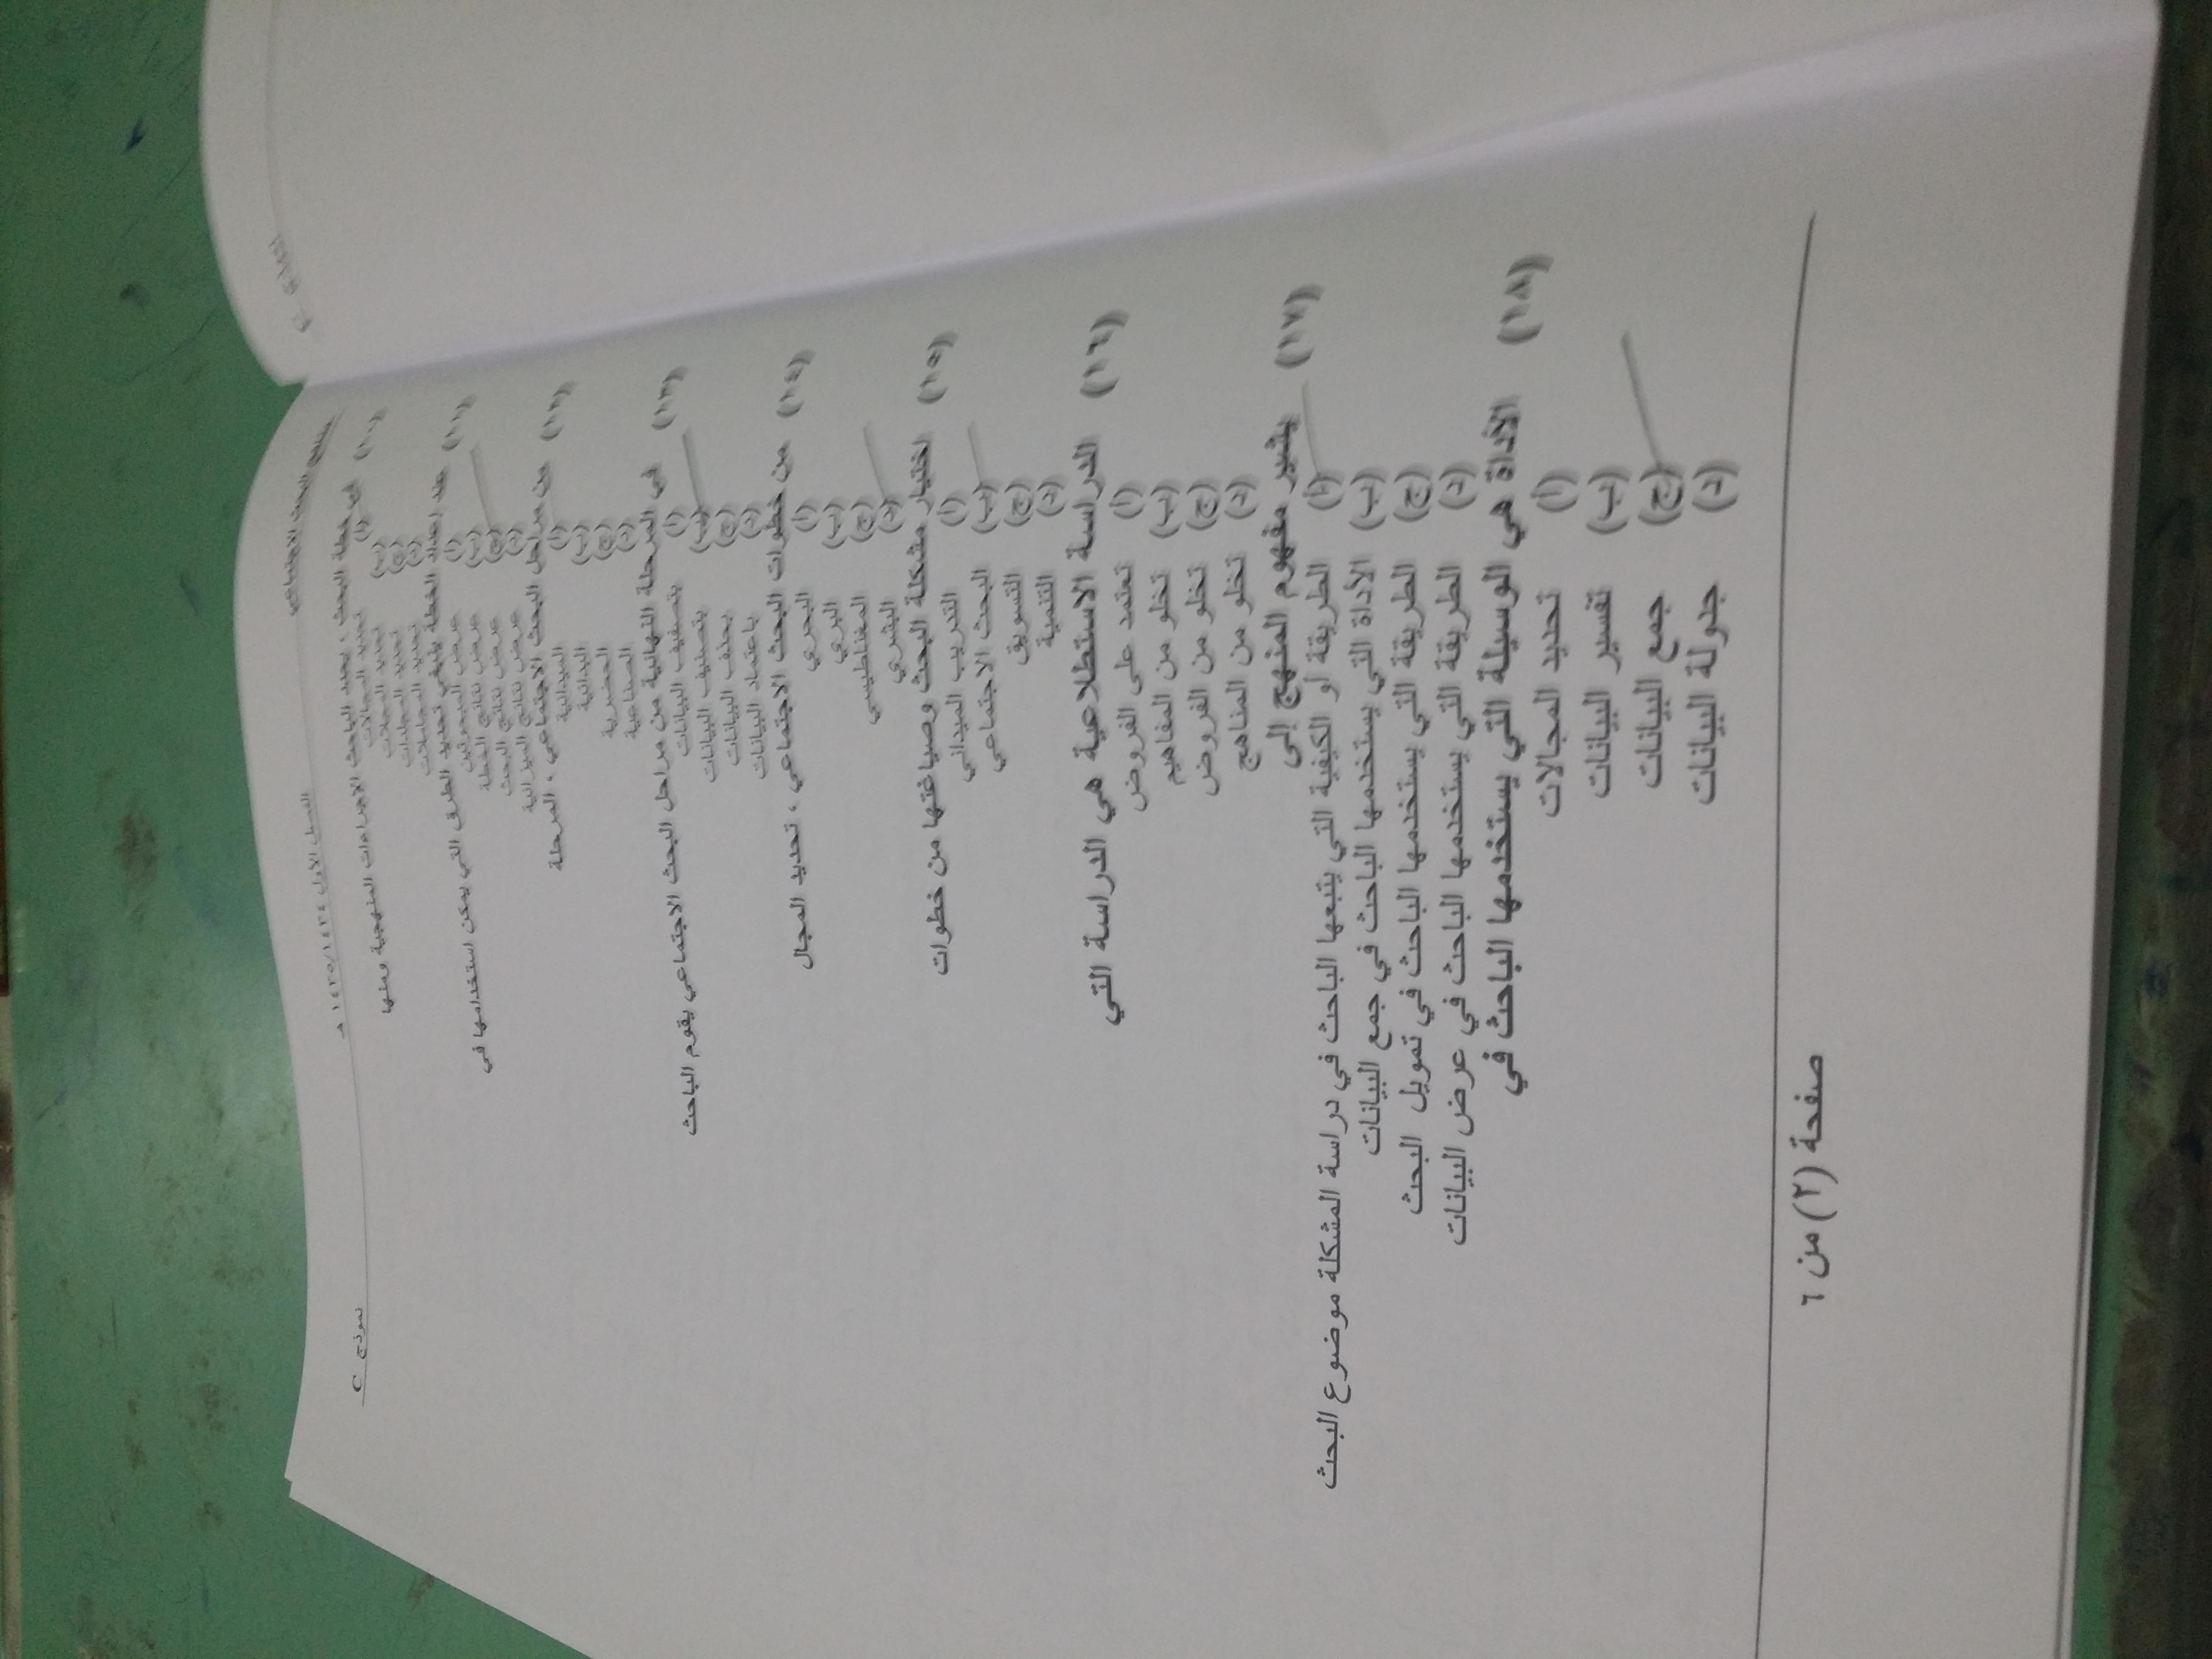 مناهج البحث الاجتماعي الفصل الأول ١٤٣٥/١٤٣٤ هـ نموذج C
(١٠) في خطة البحث ، يحدد الباحث الإجراءات المنهجية ومنها
(أ) تحديد المجالات
(ب) تحديد المجلات
(ج) تحديد المجلدات
(د) تحديد
(١١) عند إعداد الخطة ينبغي تحديد الطرق التي يمكن استخدامها في
(أ) عرض المبحوثين
(ب) عرض نتائج الخطة
(ج) عرض نتائج البحث
(د) عرض نتائج الميزانية
(١٢) من مراحل البحث الاجتماعي ، المرحلة
(أ) الميدانية
(ب) البدائية
(ج) الحضرية
(د) الصناعية
(١٣) في المرحلة النهائية من مراحل البحث الاجتماعي يقوم الباحث
(أ) بتصفيف البيانات
(ب) بتصنيف البيانات
(ج) بحذف البيانات
(د) باعتماد البيانات
(١٤) من خطوات البحث الاجتماعي ، تحديد المجال
(أ) البحري
(ب) البري
(ج) المغناطيسي
(د) البشري
(١٥) اختيار مشكلة البحث وصياغتها من خطوات
(أ) التدريب الميداني
(ب) البحث الاجتماعي
(ج) التسويق
(د) التنمية
(١٦) الدراسة الاستطلاعية هي الدراسة التي
(أ) تعتمد على الفروض
(ب) تخلو من المفاهيم
(ج) تخلو من الفروض
(د) تخلو من المناهج
(١٧) يشير مفهوم المنهج إلى
(أ) الطريقة أو الكيفية التي يتبعها الباحث في دراسة المشكلة موضوع البحث
(ب) الأداة التي يستخدمها الباحث في جمع البيانات
(ج) الطريقة التي يستخدمها الباحث في تمويل البحث
(د) الطريقة التي يستخدمها الباحث في عرض البيانات
(١٨) الأداة هي الوسيلة التي يستخدمها الباحث في
(أ) تحديد المجالات
(ب) تفسير البيانات
(ج) جمع البيانات
(د) جدولة البيانات
صفحة (٢) من ٦